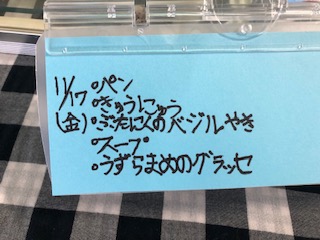 11/17 °パン
°ぎゅうにゅう
(金) °ぶたにくのバジルやき
°スープ
°うずらまめのグラッセ